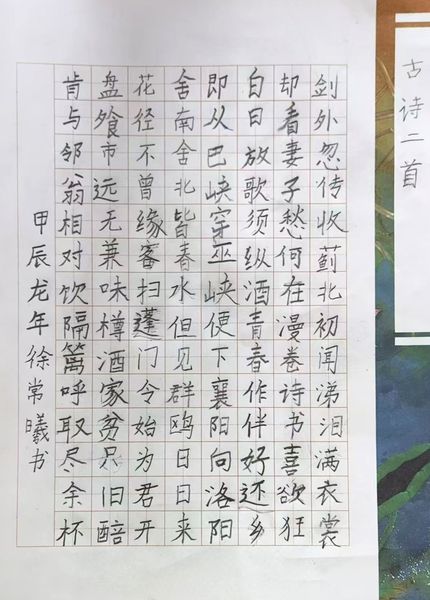 古诗二首
剑外忽传收蓟北初闻涕泪满衣裳
却看妻子愁何在漫卷诗书喜欲狂
白日放歌须纵酒青春作伴好还乡
即从巴峡穿巫峡便下襄阳向洛阳
舍南舍北皆春水但见群鸥日日来
花径不曾缘客扫蓬门今始为君开
盘飧市远无兼味樽酒家贫只旧醅
肯与邻翁相对饮隔篱呼取尽余杯
甲辰龙年徐常曦书